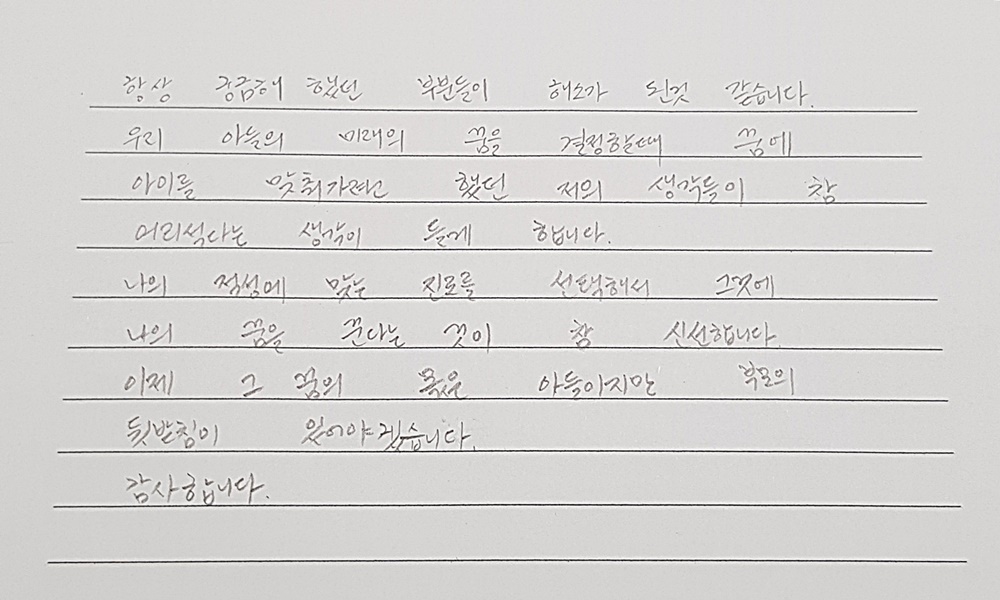 항상 궁금해 했던 부분들이 해소가 된것 같습니다.
우리 아들의 미래의 꿈을 결정할때 꿈에
아이를 맞춰가려고 했던 저의 생각들이 참
어리석다는 생각이 들게 합니다.
나의 적성에 맞는 진로를 선택해서 그것에
나의 꿈을 꾼다는 것이 참 신선합니다.
이제 그 꿈의 몫은 아들이지만 부모의
뒷받침이 있어야겠습니다.
감사합니다.